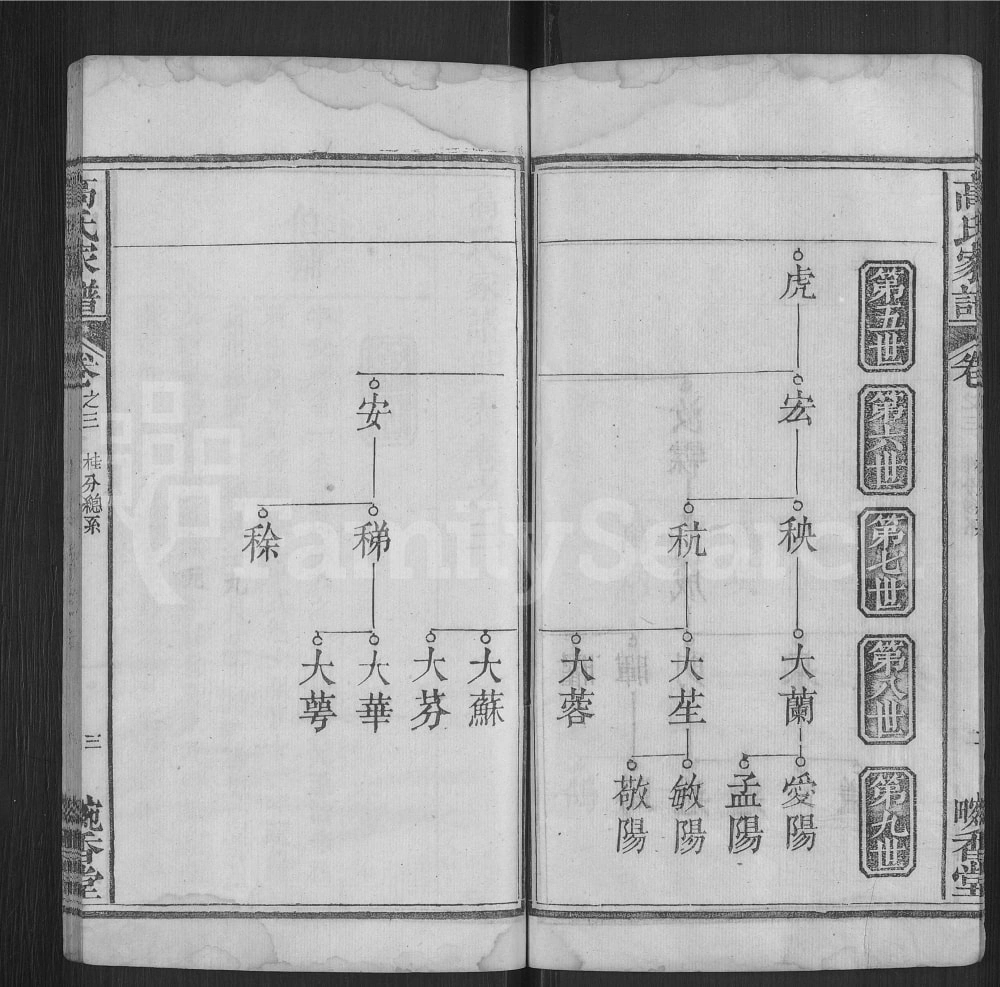 高氏家譜
卷
第五世
第六世
第七世
第八世
第九世
虎
宏
秧
大蘭
愛陽
孟陽
秔
大茥
敏陽
敬陽
大蓉
大蘇
大芬
安
稊
大華
大萼
稌
高氏家譜
卷之三
桂分總系
三
畹香堂
畹香堂
FamilySearch